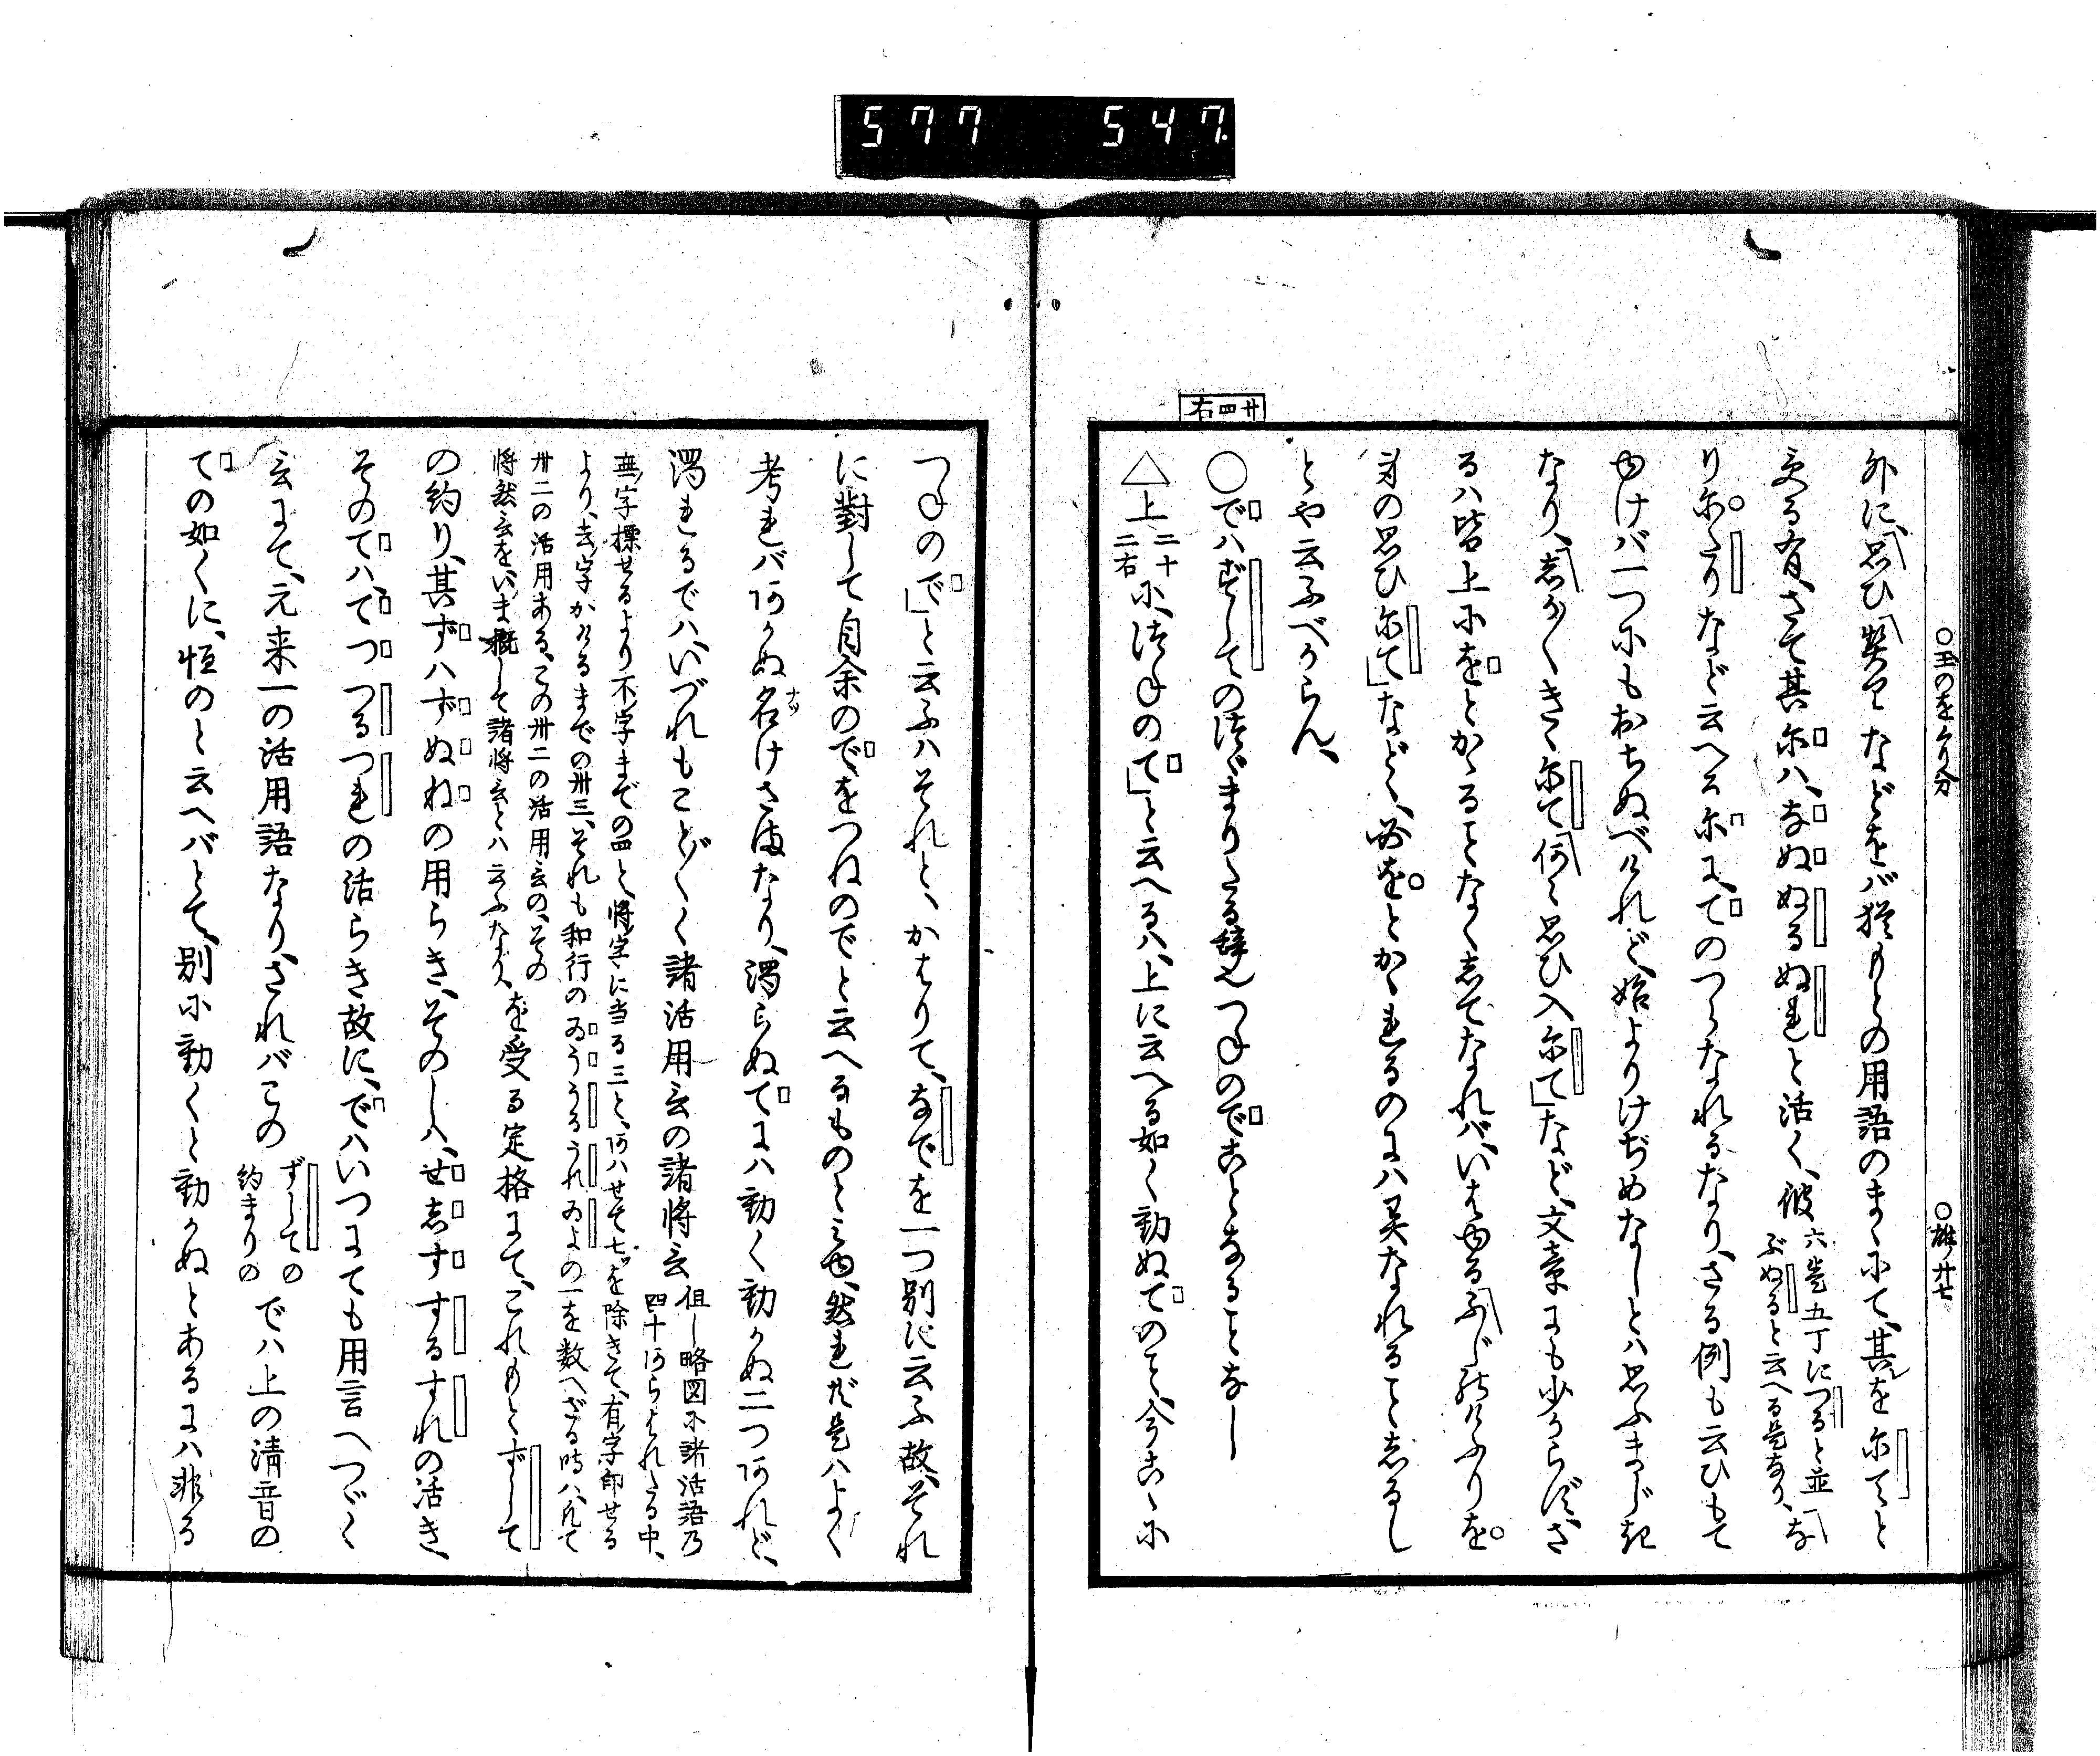 577 547
○玉のをくり分 ○雄ノ廿七
外に、思ひ契りなどをバ猶もとの用語のまゝにて、其を尓てと
受る有、さて其尓ハ、なぬぬるぬれと活く、彼六巻五丁につると並
ぶぬると云へる是なり、な
り尓たりなど云へる尓にてのつゝなれるなり、さる例も云ひもて
ゆけバ一つにもおちぬべけれど、始よりけぢめなしとハ思ふまじき
なり、志かくきゝ尓て何く思ひ入尓て」など、文章にも少からず、さ
るハ皆上にをとかゝることなく志てなれバ、いはゆる
の思ひ尓て」などゝ、必をとかゝれるのにハ異なれること志るし
とや云ふべからん、
廿四右
○でハずしてのつゞまりたる辞也つねのでことなることなし
△上二十二右に、つねのて」と云へるハ、上に云へる如く動ぬてのこと、今こゝに
つねので」と云ふハそれと、かはりて、なでを一つ別に云ふ故、それ
に對して自余のでをつねのでと云へるものとみゆ、然れど是ハよく
考れバあかぬ名けさまなり、濁らぬてにハ動く動かぬ二つあれど、
濁れるでハ、いづれもこと〴〵く諸活用言の諸将言但し略図不諸活語乃
四十あらはれたる中、
無字標せるより不字までの四と、将字に当る三と、あハせて七ツを除きて、有字部せる
より、去字かけるまでの卅三、それも和行のゐううるうれゐよの一を数へざる時ハ、凡て
卅二の活用ある、この卅二の活用言の、その
将然言を、いま概して諸将言とハ云ふなり、を受る定格にて、これもとずして
の約り、其ずハずぬねの用らき、そのしハ、せ志すするすれの活き、
そのてハ、てつつるつれの活らき故に、でハいつにても用言へつゞく
言にて、元来一の活用語なり、されバこのずしての
約まりのでハ上の清音の
ての如くに、恒のと云へバとて、別に動くと動かぬとあるにハ非る